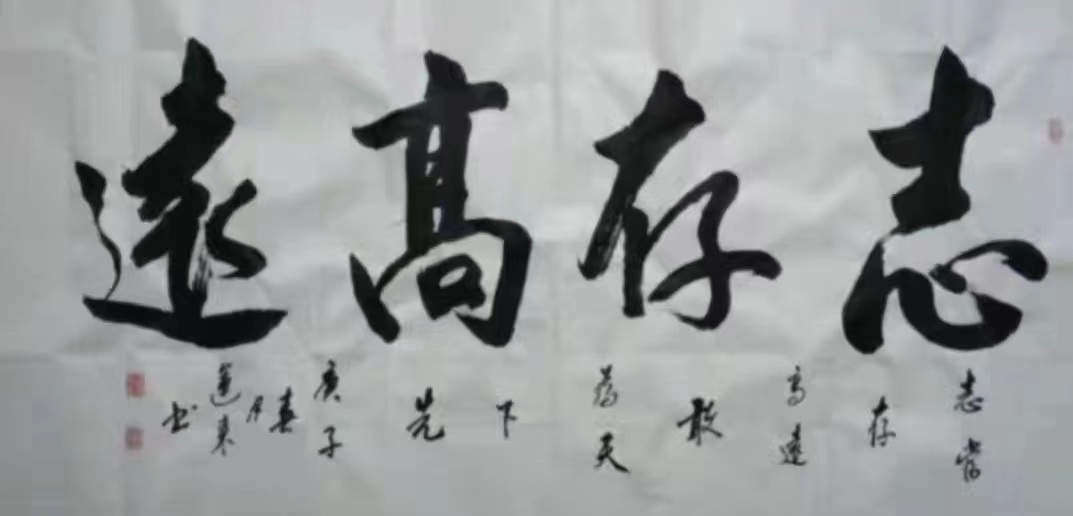 志存高遠
志當
存
高遠
敢
為天
下
先
庚子
春月
蓮東
书